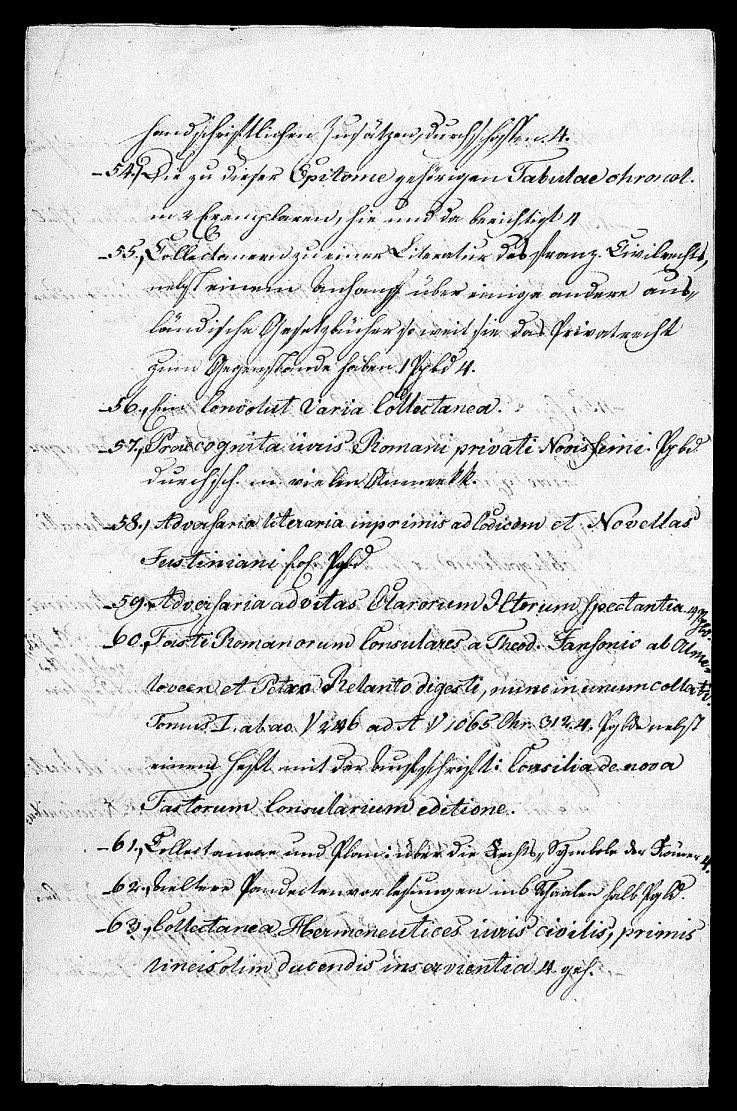 handschriftlichen Zusätzen, durchschossen. 4.
54., Die zu dieser Epitome gehörigen Tabulae chronol.
in 2 Exemplaren, hie und da berichtigt 4
55., Collectaneen zu einer Literatur des franz. Civilrechts,
nebst einem Anhang über einige andere aus-
ländische Gesetzbücher so weit sie das Privatrecht
zum Gegenstande haben 1 Ppbd 4.
56., Ein Convolut Varia Collectanea.
57., Praecognita iuris Romani privati Novissimi. Ppbd.
durchsch. m vielen Anmerkk.
58., Adversaria literaria inprimis ad Codicem et Novellas
Justiniani fol. Ppbd
59., Adversaria ad vitas Clarorum ICtorum spectantia 4 Ppbd.
60., Fasti Romanorum Consulares a Theod. Jansonio ab Alme-
loveen et Petro Relanto digesti, nunc in unum collecti.
Tomus I. ab ao. V 246 ad A V 1065 Chr. 312. 4. Ppbde nebst
einem Heft mit der Aufschrift: Consilia de nova
Fastorum Consularium editione.
61., Collectaneae und Plan: über die Rechts-Symbole der Römer 4.
62., Aeltere Pandectenvorlesungen in 6 Schaalen halb Ppbd.
63., Collectanea Hermeneutices iuris civilis, primis
lineis olim ducendis inservientia 4 geh.